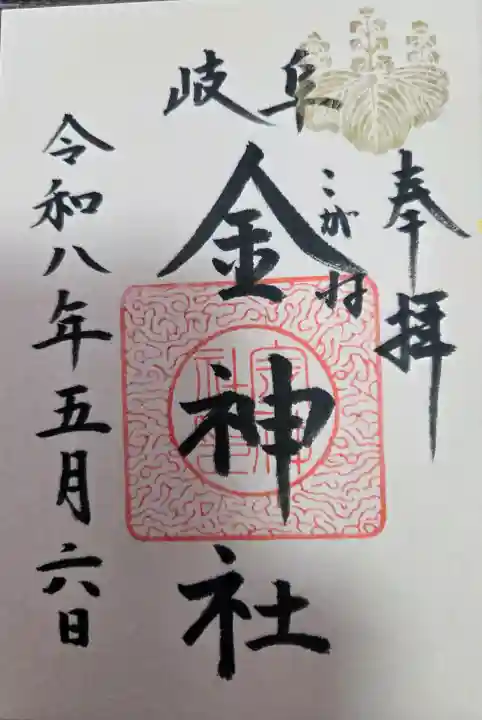 奉拝
岐阜
金神社
こがね
令和八年五月六日